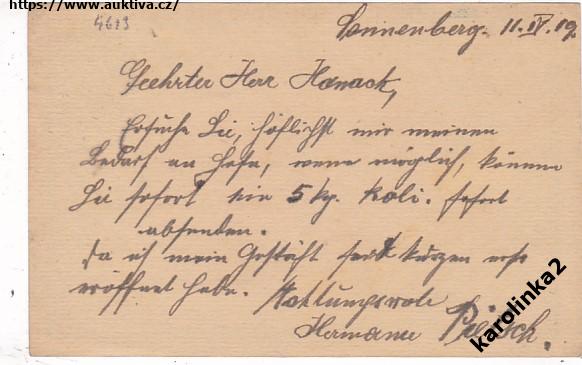 https://www.auktiva.cz/
4613
Sonnenberg. 11.IV.19
Geehrter Herr Hanack,
Ersuche Sie, höflichst mir meinen
Bedarf an Hefe, wenn möglich, können
Sie sofort ein 5 kg. Koli. sofort
absenden.
Da ich mein Geschäft seit kurzen erst
eröffnet habe. Achtungsvoll
Hermann
karolinka2